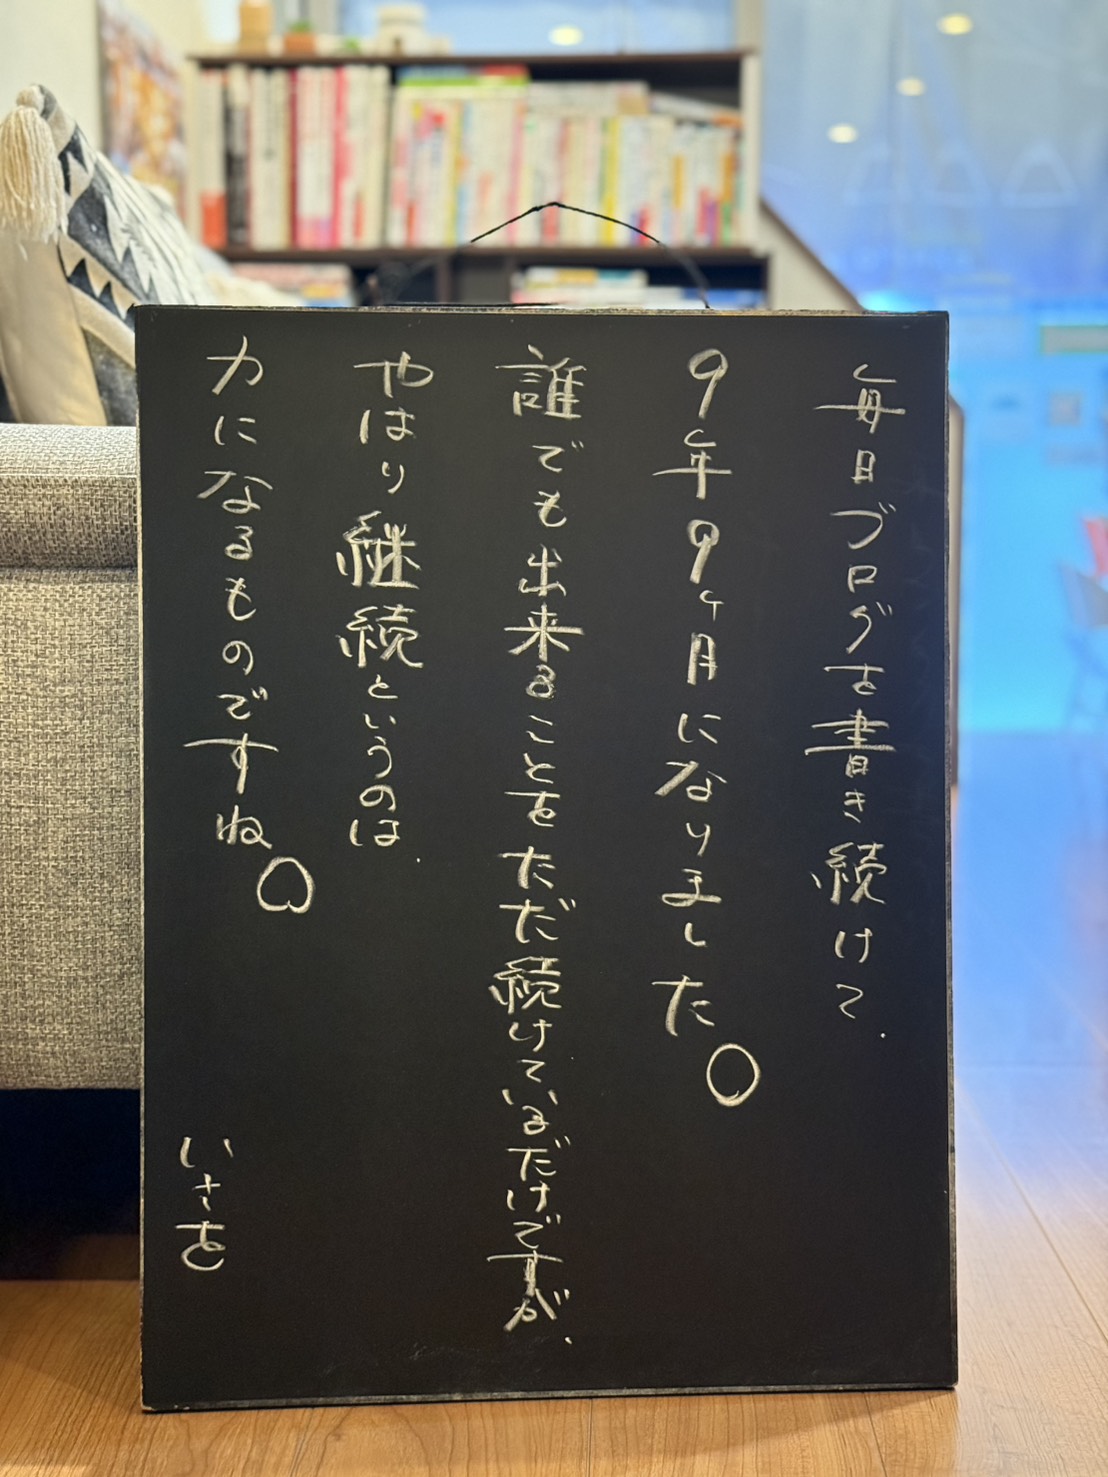 毎日ブログを書き続けて、
9年9ヶ月になりました。
誰でも出来ることをただ続けているだけですが、
やはり継続というのは、
力になるものですね。
いさを